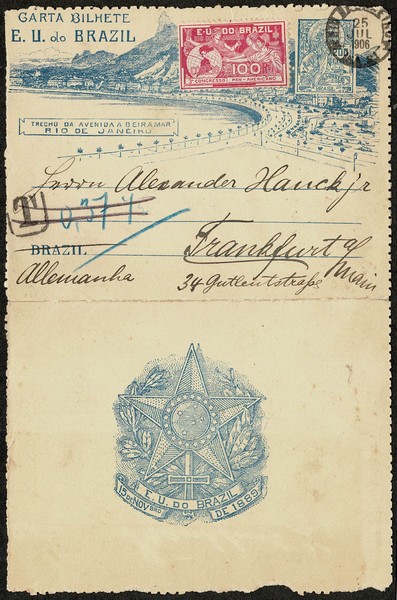 CARTA BILHETE
E. U. do BRAZIL
E·U·DO BRAZIL
100
3º CONGRESSO PAN-AMERICANO
25
1906
TRECHO DA AVENIDA A BEIRAMAR
RIO DE JANEIRO
Herrn Alexander Hanck jr
T
0,37 1
Frankfurt a/
Main
BRAZIL
Allemanha
34 Gutleutstraße
E. U. DO BRAZIL
15 DE NOVBRO DE 1889